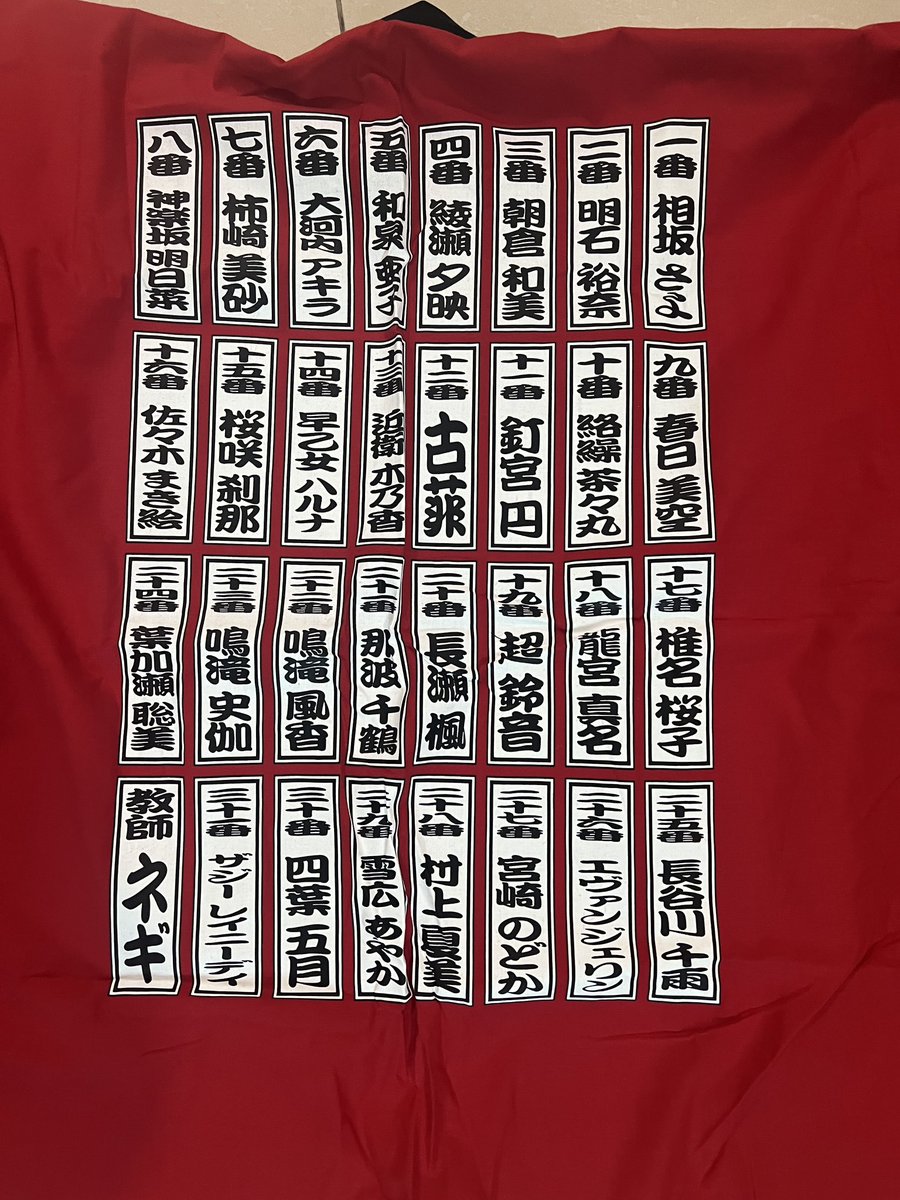 一番 相坂 さよ
二番 明石 裕奈
三番 朝倉 和美
四番 綾瀬 夕映
五番 和泉 亜子
六番 大河内 アキラ
七番 柿崎 美砂
八番 神楽坂 明日菜
九番 春日 美空
十番 絡繰 茶々丸
十一番 釘宮 円
十二番 古菲
十三番 近衛 木乃香
十四番 早乙女 ハルナ
十五番 桜咲 刹那
十六番 佐々木 まき絵
十七番 椎名 桜子
十八番 龍宮 真名
十九番 超 鈴音
二十番 長瀬 楓
二十一番 那波 千鶴
二十二番 鳴滝 風香
二十三番 鳴滝 史伽
二十四番 葉加瀬 聡美
二十五番 長谷川 千雨
二十六番 エヴァンジェリン
二十七番 宮崎 のどか
二十八番 村上 夏美
二十九番 雪広 あやか
三十番 四葉 五月
三十一番 ザジーレイニーデイ
教師 ネギ